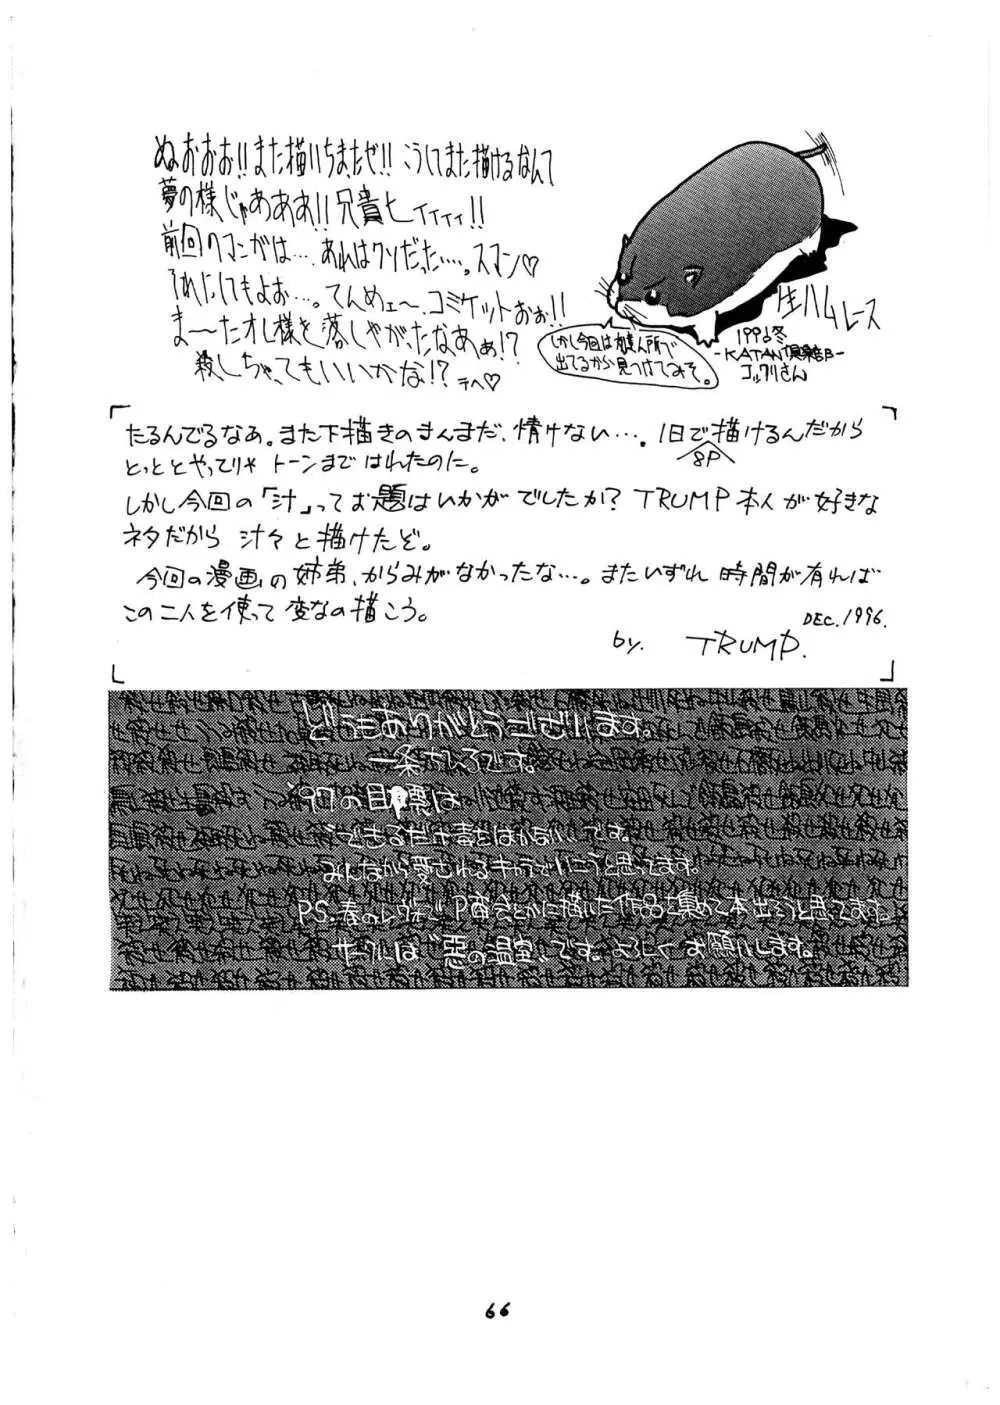 ぬおおお!!また描いちまたぜ!! こうしてまた描けるなんて
夢の様じゃあああ!!兄貴ヒィィィィ!!
前回のマンガは…あれはクソだった…。スマン♡
それにしてもよお…。てんめェ〜、コミケットおぉ!!
ま〜たオレ様を落しやがったなあぁ!?
殺しちゃってもいいかな!?テヘ♡
しかし今回は
出てるから見つけてみそ。
生ハムレース
1996冬
-KATAN倶楽部-
コックリさん
たるんでるなあ。また下描きのまんまだ、情けない…。1日で描けるんだから
8P
とっととやってりゃ トーンまで はれたのに。
しかし今回の「汁」ってお題はいかがでしたか? TRUMP本人が好きな
ネタだから 汁々と描けたぞ。
今回の漫画の姉弟、からみがなかったな…。またいずれ 時間が有れば
この二人を使って変なの描こう。
DEC.1996.
by. TRUMP.
どうもありがとうございます。
です。
'97の目標は
"できるだけ毒をはかない"です。
みんなから愛されるキャラでいこうと思ってます。
PS.春のレヴォでP宙会とかに描いた作品を集めて本出そうと思ってます
サークルは"悪の温室"です。よろしくお願いします。
66